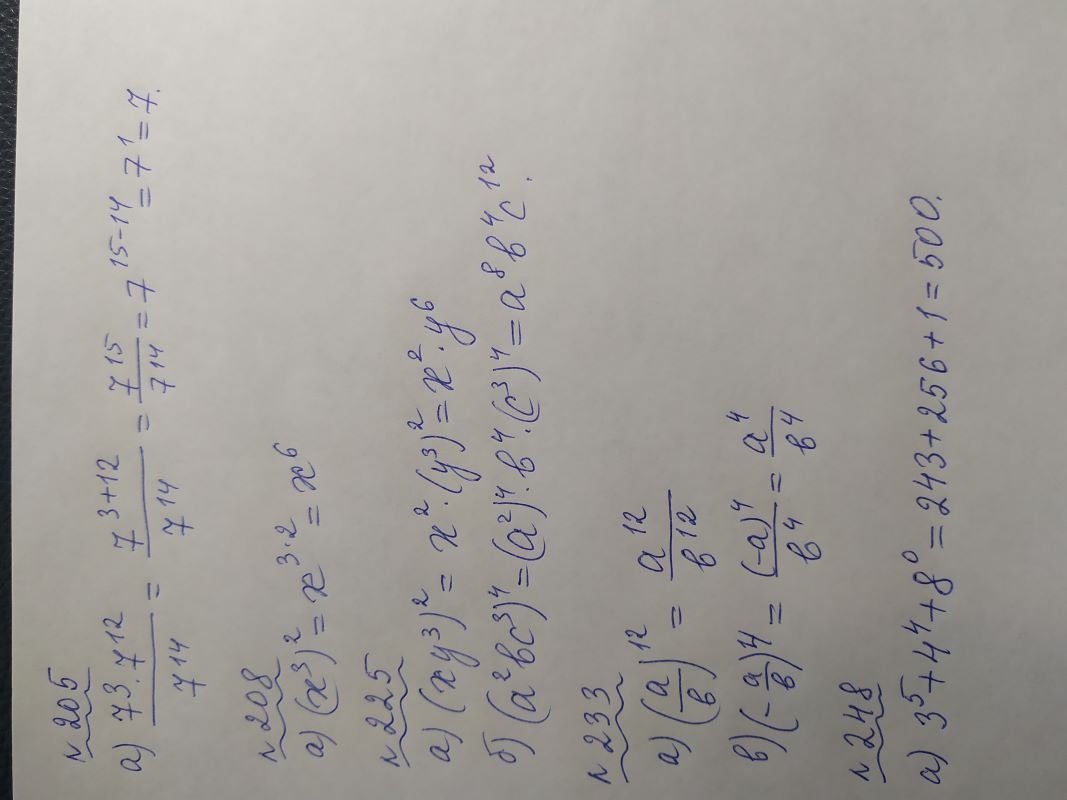 № 205
а) 7³·7¹² / 7¹⁴ = 7³⁺¹² / 7¹⁴ = 7¹⁵ / 7¹⁴ = 7¹⁵⁻¹⁴ = 7¹ = 7.
№ 208
а) (x³)² = x³·² = x⁶
№ 225
а) (xy³)² = x²·(y³)² = x²·y⁶
б) (a²bc³)⁴ = (a²)⁴·b⁴·(c³)⁴ = a⁸b⁴c¹².
№ 233
а) (a/b)¹² = a¹²/b¹²
в) (-a/b)⁴ = (-a)⁴/b⁴ = a⁴/b⁴
№ 248
а) 3⁵+4⁴+8⁰ = 243+256+1 = 500.